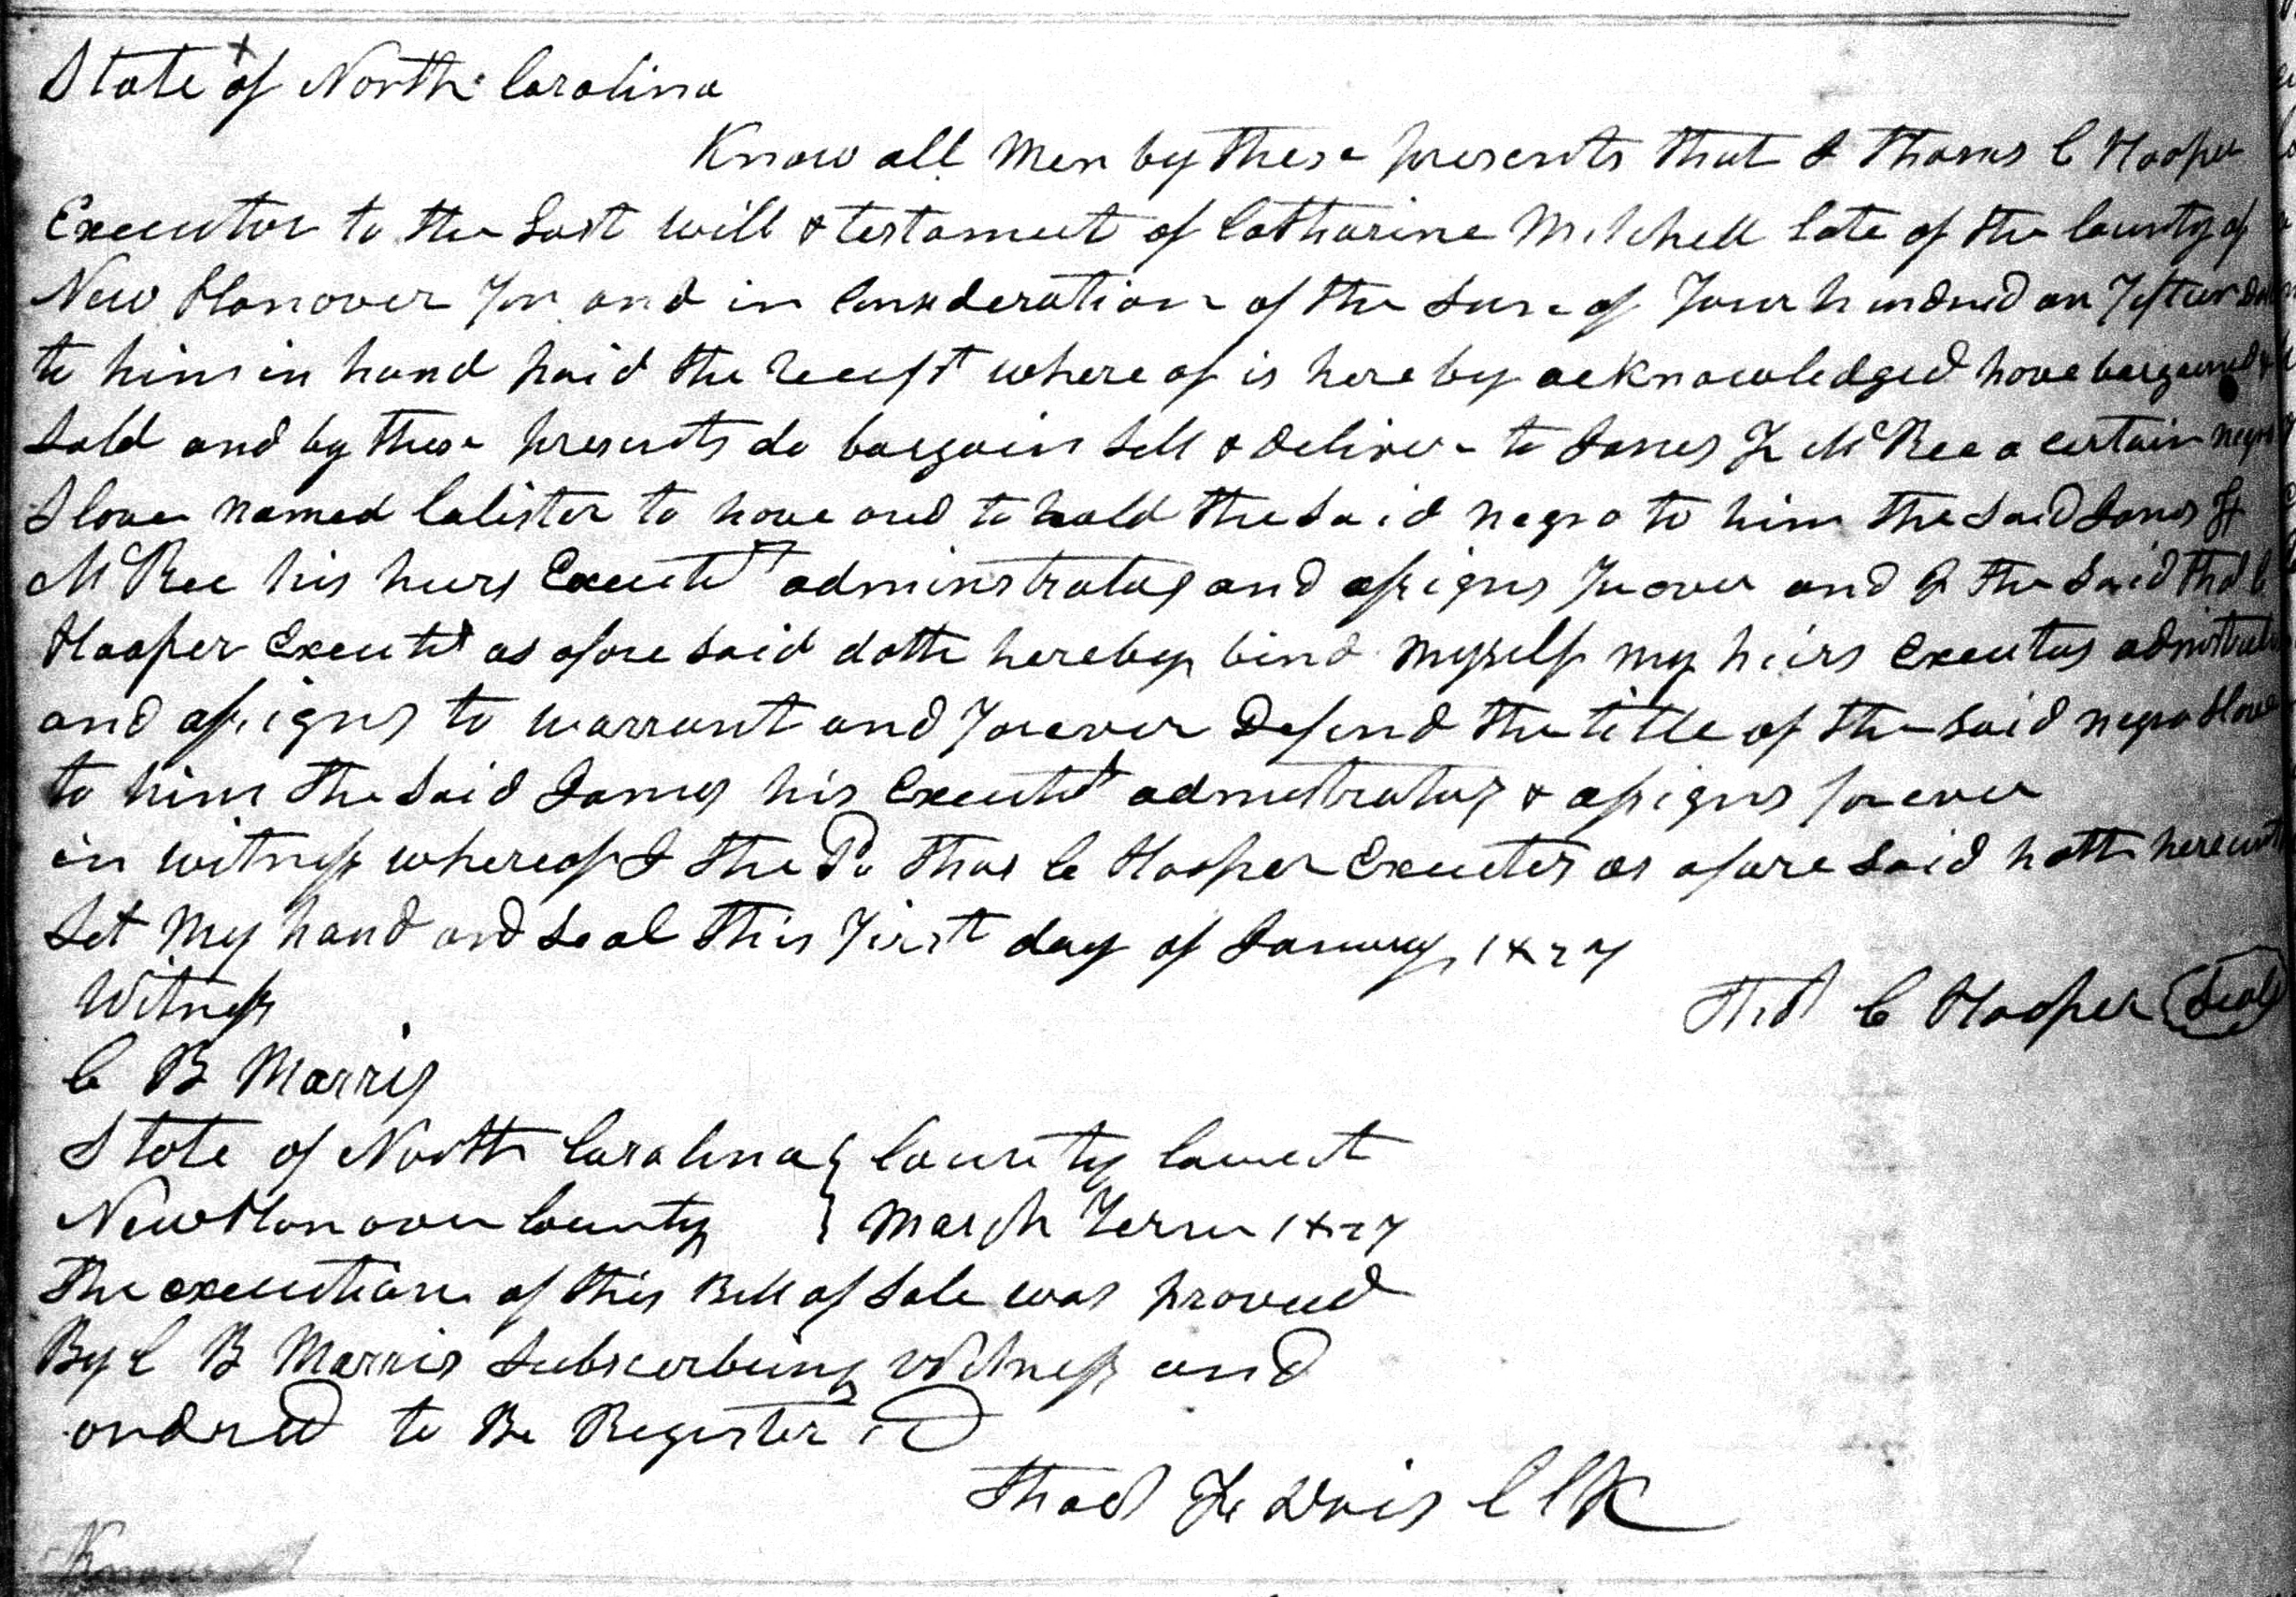 State of North Carolina
Know all Men by these presents that I Thomas C Hooper
Executor to the Last will & testament of Catharine Mitchell late of the County of
New Hanover for and in Consideration of the Sum of Four hundred an Fifteen
to him in hand paid the receipt where of is here by acknowledged have bargained &
Sold and by these presents do bargain sell & deliver to James F McRee a certain negro
Slave named Calister to have and to hold the said negro to him the said James F
McRee his heirs Execut administrators and assigns forever and I the said Thos C
Hooper Execut as afore said doth hereby bind myself my heirs executors
and assigns to warrant and forever Defend the title of the said negro slave
to him the said James his Execut admistrators & assigns forever
in witness whereof I the Thos C Hooper Executor as afore said hath hereunto
set my hand and seal this First day of January 1827
Witness
Thos C Hooper Seal
C B Morris
State of North Carolina County Court
New Hanover County March Term 1827
The execution of this Bill of Sale was proved
By C B Morris Subscribing Witness and
ordred to Be Registerd
Thos F Davis Clk
Know